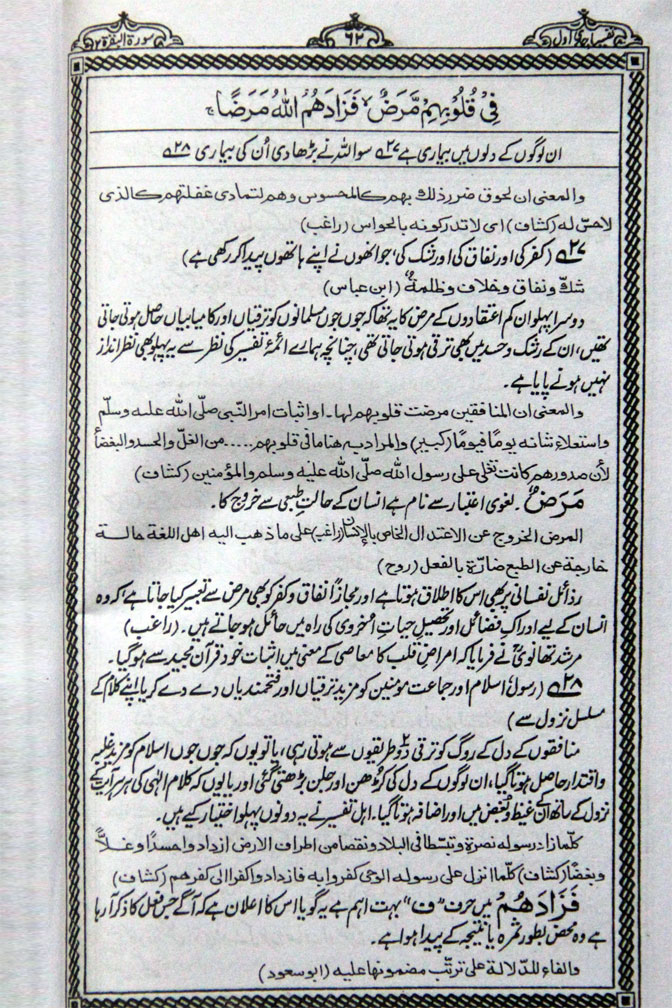 تفسیر ماجدی اول
۶۲
سورة البقرة ۲
فِیْ قُلُوْبِهِمْ مَّرَضٌ ۙ فَزَادَهُمُ اللّٰهُ مَرَضًا ۚ
ان لوگوں کے دلوں میں بیماری ہے ۲۷؎ سو اللہ نے بڑھا دی اُن کی بیماری ۲۸؎
والمعنى ان لحوق ضرر ذلك بهم كالمحسوس وهم لتمادى غفلتهم كالذى
لاحسّ له (كشاف) اى لاتدركونه بالحواس (راغب)
۲۷؎ (کفر کی اور نفاق کی اور شک کی، جو انھوں نے اپنے ہاتھوں پیدا کر رکھی ہے)
شكّ ونفاق وخلاف وظلمةٌ (ابن عباس)
دوسرا پہلو ان کم اعتقادوں کے مرض کا یہ تھا کہ جوں جوں مسلمانوں کو ترقیاں اور کامیابیاں حاصل ہوتی جاتی
تھیں، ان کے رشک و حسد میں بھی ترقی ہوتی جاتی تھی، چنانچہ ہمارے ائمۂ تفسیر کی نظر سے یہ پہلو بھی نظر انداز
نہیں ہونے پایا ہے۔
والمعنى ان المنافقين مرضت قلوبهم لها۔ او اثبات امر النبى صلّى الله عليه وسلّم
واستعلاء شانه يومًا فيومًا (كبير) والمراد به هنا ما فى قلوبهم ..... من الغلّ والحسد والبغضأ
لأن صدورهم كانت تغلى على رسول الله صلّى الله عليه وسلم والمؤمنين (كشاف)
مَرَضٌ۔ لغوی اعتبار سے نام ہے انسان کے حالتِ طبعی سے خروج کا۔
المرض الخروج عن الاعتدال الخاص بالإنسان (راغب) على ما ذهب اليه اهل اللغة حالة
خارجة عن الطبع ضارّة بالفعل (روح)
رذائل نفسانی پر بھی اس کا اطلاق ہوتا ہے اور مجازاً نفاق و کفر کو بھی مرض سے تعبیر کیا جاتا ہے کہ وہ
انسان کے لیے ادراکِ فضائل اور تحصیلِ حیاتِ اُخروی کی راہ میں حائل ہو جاتے ہیں۔ (راغب)
مرشد تھانویؒ نے فرمایا کہ امراضِ قلب کا معاصی کے معنی میں اثبات خود قرآن مجید سے ہو گیا۔
۲۸؎ (رسولؐ اسلام اور جماعت مؤمنین کو مزید ترقیاں اور فتحمندیاں دے دے کر یا اپنے کلام کے
مسلسل نزول سے)
منافقوں کے دل کے روگ کو ترقی دو طریقوں سے ہوتی رہی، یا تو یوں کہ جوں جوں اسلام کو مزید غلبہ
و اقتدار حاصل ہوتا گیا، ان لوگوں کے دل کی کڑھن اور جلن بڑھتی گئی اور یا یوں کہ کلام الٰہی کی ہر ہر آیت کے
نزول کے ساتھ ان کے غیظ و بغض میں اور اضافہ ہوتا گیا۔ اہل تفسیر نے یہ دونوں پہلو اختیار کیے ہیں۔
كلّما زاد رسوله نصرة وتبسّطا فى البلاد ونقصا من اطراف الارض ازدادوا حسدًا وغلًّا
وبغضًا (كشاف) كلّما انزل على رسوله الوحى كفروا به فازدادوا كفرا الى كفرهم (كشاف)
فَزَادَهُمُ میں حرف "ف" بہت اہم ہے یہ گویا اس کا اعلان ہے کہ آگے جس فعل کا ذکر آ رہا
ہے وہ محض بطور ثمرہ یا نتیجہ کے پیدا ہوا ہے۔
والفاء للدّلالة على ترتّب مضمونها عليه (ابوسعود)